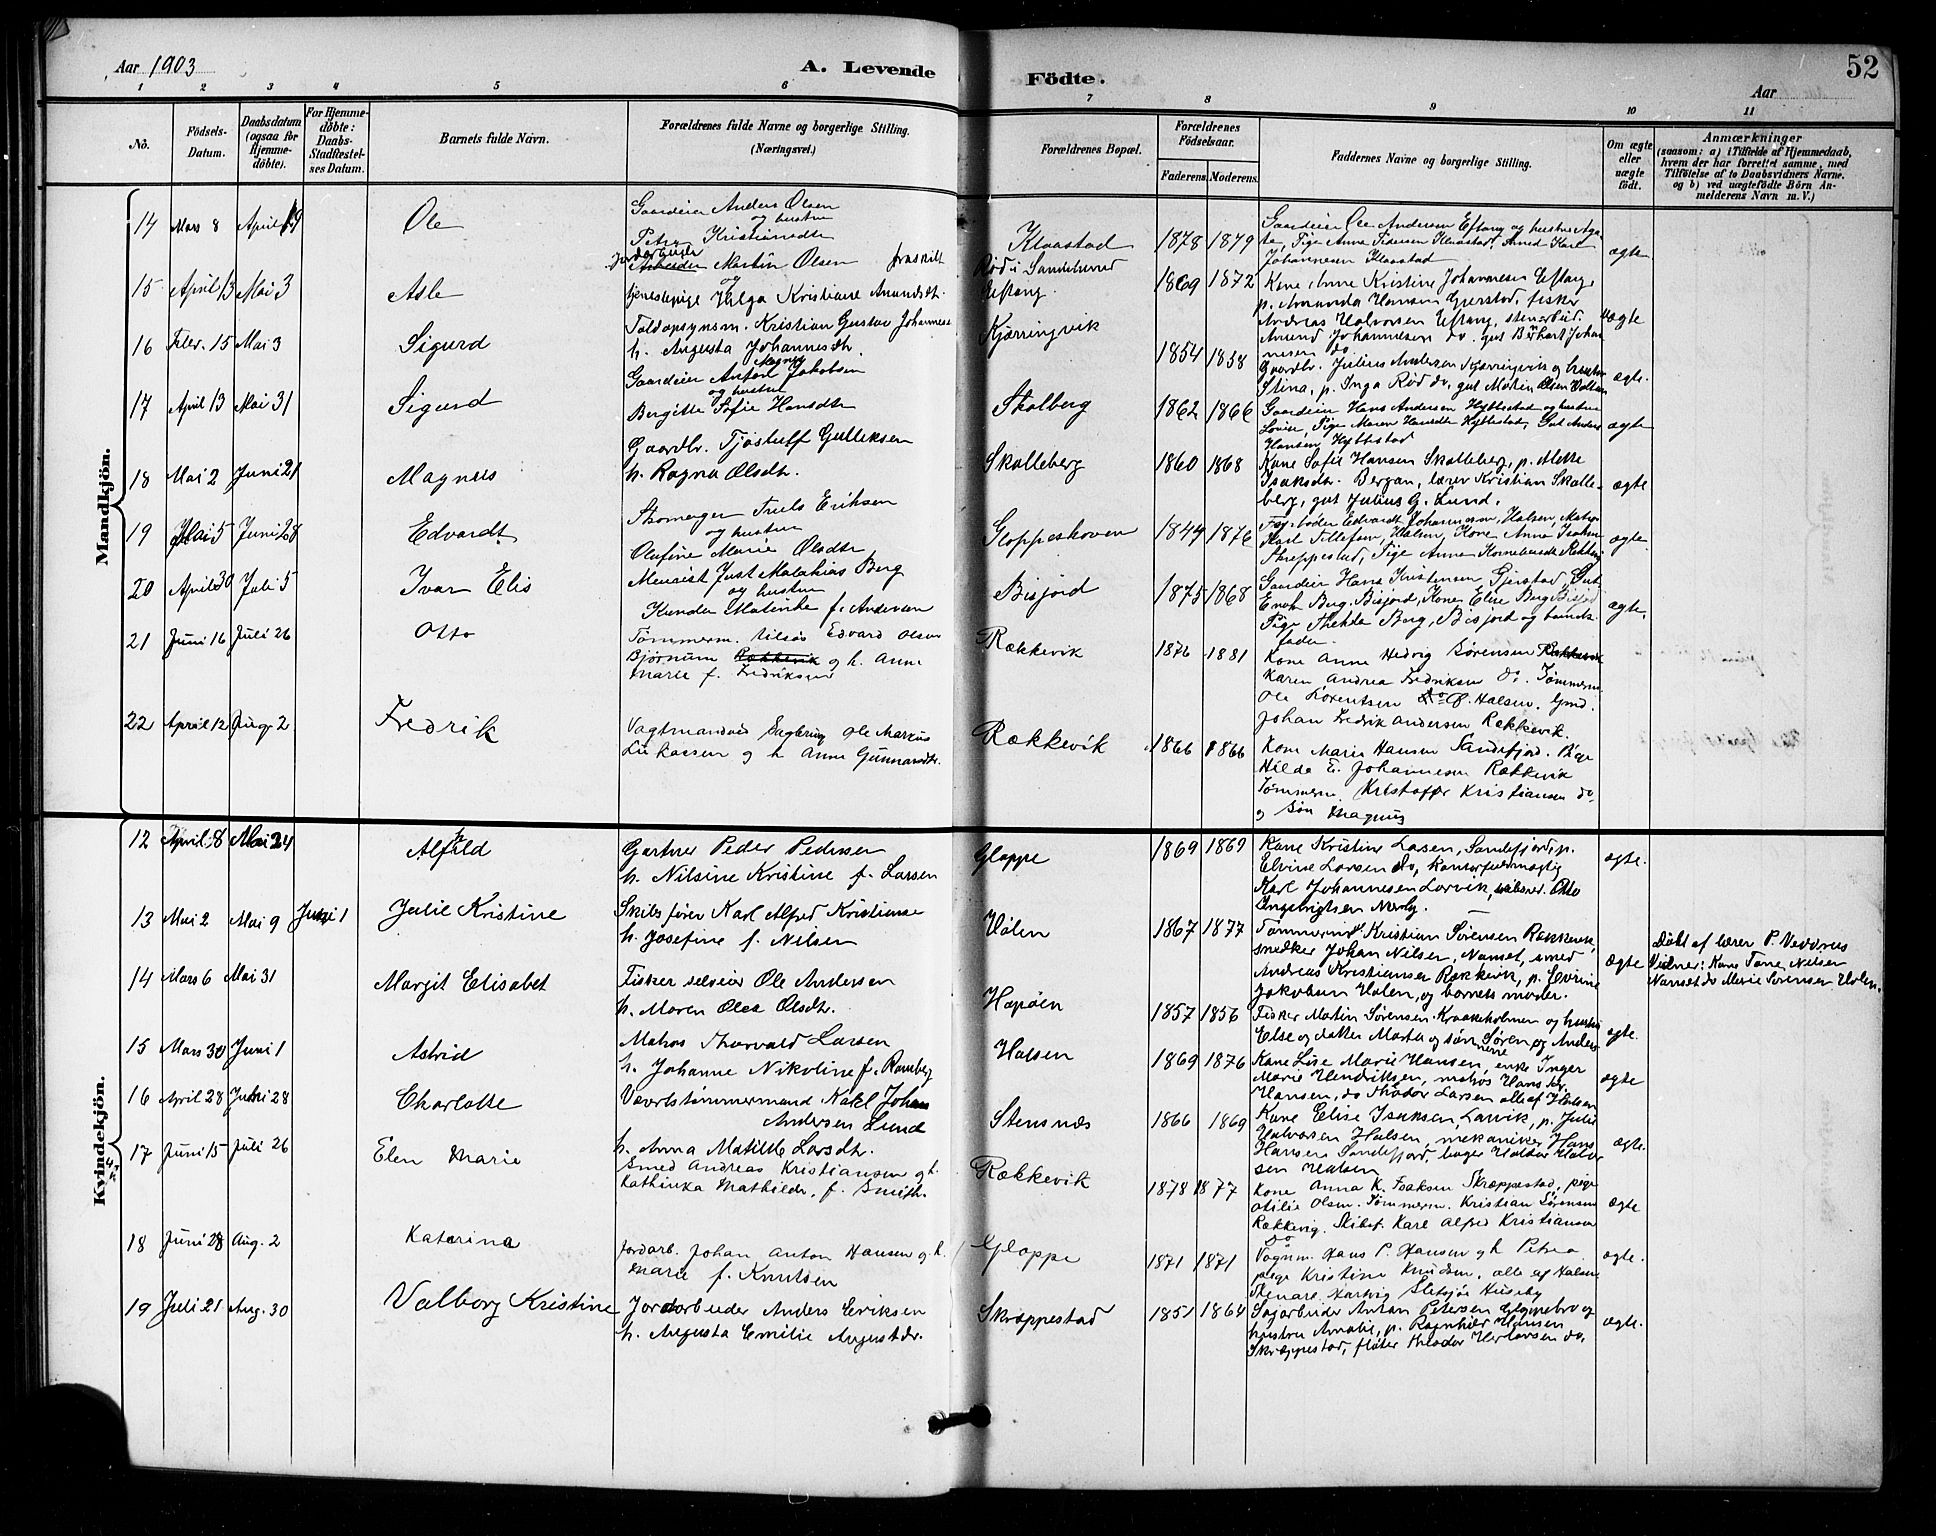 Aar 1903
A. Levende Födte.
Aar
52
1 2 3 4 5 6 7 8 9 10 11
No.
Födsels-Datum.
Daabsdatum (ogsaa for Hjemme-döbte).
For Hjemme-döbte: Daabs-Stadfæstel-ses Datum.
Barnets fulde Navn.
Forældrenes fulde Navne og borgerlige Stilling. (Næringsvei.)
Forældrenes Bopæl.
Forældrenes Födselsaar.
Faderens. Moderens.
Faddernes Navne og borgerlige Stilling.
Om ægte eller uægte födt.
Anmærkninger
(saasom: a) i Tilfælde af Hjemmedaab,
hvem der har forrettet samme, med
Tilföielse af to Daabsvidners Navne.
og b) ved uægtefödte Börn An-
melderens Navn m. V.)
Mandkjön.
14 Mars 8 April 19 Ole
Gaardeier Anders Olsen
og hustru
Petra Kristiansdtr
Klaastad 1878 1879
Gaardeier Ole Andersen Eftang og hustru Aga-
ta, Pige Anna Pedersen Klaastad, Arned Karl
Johannesen Klaastad
ægte
15 April 13 Mai 3 Asle
Jordarbeide
Arbeider Martin Olsen fraskilt
og
tjenestepige Helga Kristiane Amundsdt.
Rød i Sandeherred
Eftang. 1869 1872
Kone Anne Kristine Johannesen Eftang,
p. Amanda Hansen Gjerstad, fisker
Andreas Halvorsen Eftang, stenarbeid.
Amund Johannesen do. gut Bernhart Johan
nesen do
uægte
16 Febr. 15 Mai 3 Sigurd
Toldopsynsm. Kristian Gustav Johannese
h. Augusta Johannesdtr.
Kjørringvik 1854 1858
Gaardbr. Julius Andersen Kjørringvik og hustru
Stina, p. Inga Rød do, gut Martin Olsen
ægte.
17 April 13 Mai 31 Sigurd
Gaardeier Anton Jakobsen
og hustru
Bergitte Sofie Hansdtr
Skolberg 1862 1866
Gaardeier Hans Andersen Hybbestad og hustru
Lovise, Pige Maren Hansdtr Hybbestad, Gut Anders
Hansen Hybbestad
ægte
18 Mai 2 Juni 21 Magnus
Gaardbr. Tjøstuff Gulliksen
h. Ragna Olsdtr.
Skalleberg 1860 1868
Kone Sofie Hansen Skalleberg, p. Mette
Isaksdtr. Bergan, lærer Kristian Skalle-
berg, gut Julius G. Lund.
ægte
19 Mai 5 Juni 28 Edvardt
Skomager Truls Eriksen
og hustru
Olufine Marie Olsdtr
Gloppeshoven 1844 1876
Edvardt Johannesen, Halsen, Matros
Karl Tollefsen, Halsen, Kone Anna Isaksen
Skreppestad, Pige Anna
ægte.
20 April 30 Juli 5 Ivar Elis
Menrist Just Malakias Berg
og hustru
Kunda Matenke f. Andersen
Bisjord 1875 1868
Gaardeier Hans Kristensen Gjerstad, Gut
Enok Berg, Bisjord, Kone Elise Berg Bisjord
Pige Thekda Berg, Bisjord og barnets
fader.
ægte.
21 Juni 16 Juli 26 Otto
Tømmerm. Nilsøs Edvard Olsen
Bjørnum Rækkevik og h. Anne
Marie f. Fredriksen
Rækkevik 1876 1881
Kone Anne Hedvig Sørensen Rækkevik
Karen Andrea Fredriksen do. Tømmerm.
Ole Lorentsen do. Halsen. Gmd.
Johan Fredrik Andersen Rækkevik.
22 April 12 Aug. 2 Fredrik
Vagtmandved Sagbrug Ole Markus
Lukassen og h Anne Gunnarsdtr.
Rækkevik 1866 1866
Kone Marie Hansen Sandefjord. Pige
Hilda E. Johannesen Rækkevik
Tømmerm. Kristoffer Kristiansen do.
og Søn Magnus
Kvindekjön.
12 April 8 Mai 24 Alfhild
Gartner Peder Pedersen
h. Nilsine Kristine f. Larsen
Gloppe 1869 1869
Kone Kristine Larsen, Sandefjord, p.
Elvine Larsen do, kontorfuldmægtig
Karl Johannesen Larvik, Otto
Ingebrigtsen
ægte.
13 Mai 2 Mai 9 Juni 1 Julie Kristine
Skibsfører Karl Alfred Kristianse
h. Josefine f. Nilsen
Valen 1867 1877
Tømmermd Kristian Sørensen Rækkevik,
snedker Johan Nilsen, Nanset, smed
Andreas Kristiansen Rækkevik, p. Hovine
Jakobsen Valen, og barnets moder.
ægte
Døbt af lærer P. Vedvus
Vidner: Kone Tone Nilsen
Nanset do Marie Sørensen Valen.
14 Mars 6 Mai 31 Margit Elisabet
Fisker selveier Ole Andersen
h. Maren Olea Olsdtr.
Hapøen 1857 1856
Fisker Matin Sørensen Kraakeholmen og hustru
Else og datter Marta og søn Søren og Anders
ægte.
15 Mars 30 Juni 1 Astrid
Matros Thorvald Larsen
h. Johanne Nikoline f. Ramberg
Halsen 1869 1876
Kone Lise Marie Hansen, enke Inger
Marie Hendriksen, matros Hans Chr.
Hansen, do Thodor Larsen alle af Halsen
ægte
16 April 28 Juni 28 Charlotte
Værkstømmermand Karl Johan
Andersen Lund
h. Anna Matilde Larsdtr.
Stensnæs 1866 1869
Kone Elise Isaksen, Larvik, p. Julie
Halvorsen Halsen, mekaniker Hans
Hansen Sandefjord, bager Haldor Halvor
sen Halsen
ægte.
17 Juni 15 Juli 26 Elen Marie
Smed Andreas Kristiansen og h.
Kathinka Mathilde, f. Smith.
Rækkevik 1878 1877
Kone Anna K. Isaksen Skræppestad, pige
Otilie Olsen. Tømmerm. Kristian Sørensen
Rækkevig. Skibsf. Karl Alfred Kristiansen
do
ægte
18 Juni 28 Aug. 2 Katarina
Jordarb. Johan Anton Hansen og h.
Marie f. Knutsen
Gloppe 1871 1871
Vognm. Hans P. Hansen og h Petrea
pige Kristine Knudsen, alle af Halsen
Stenarb. Hartvig Sletsjø Huseby
ægte.
19 Juli 21 Aug. 30 Valborg Kristine
Jordarbeider Anders Eriksen
h. Augusta Emilie Augustdtr.
Skræppestad 1851 1864
Sagarbeider Anton Petersen Gjønnebro og
hustru Amalie, p. Ragnhild Hansen
Skræppestad, fløter Theodor Herlovsen do,
ægte.